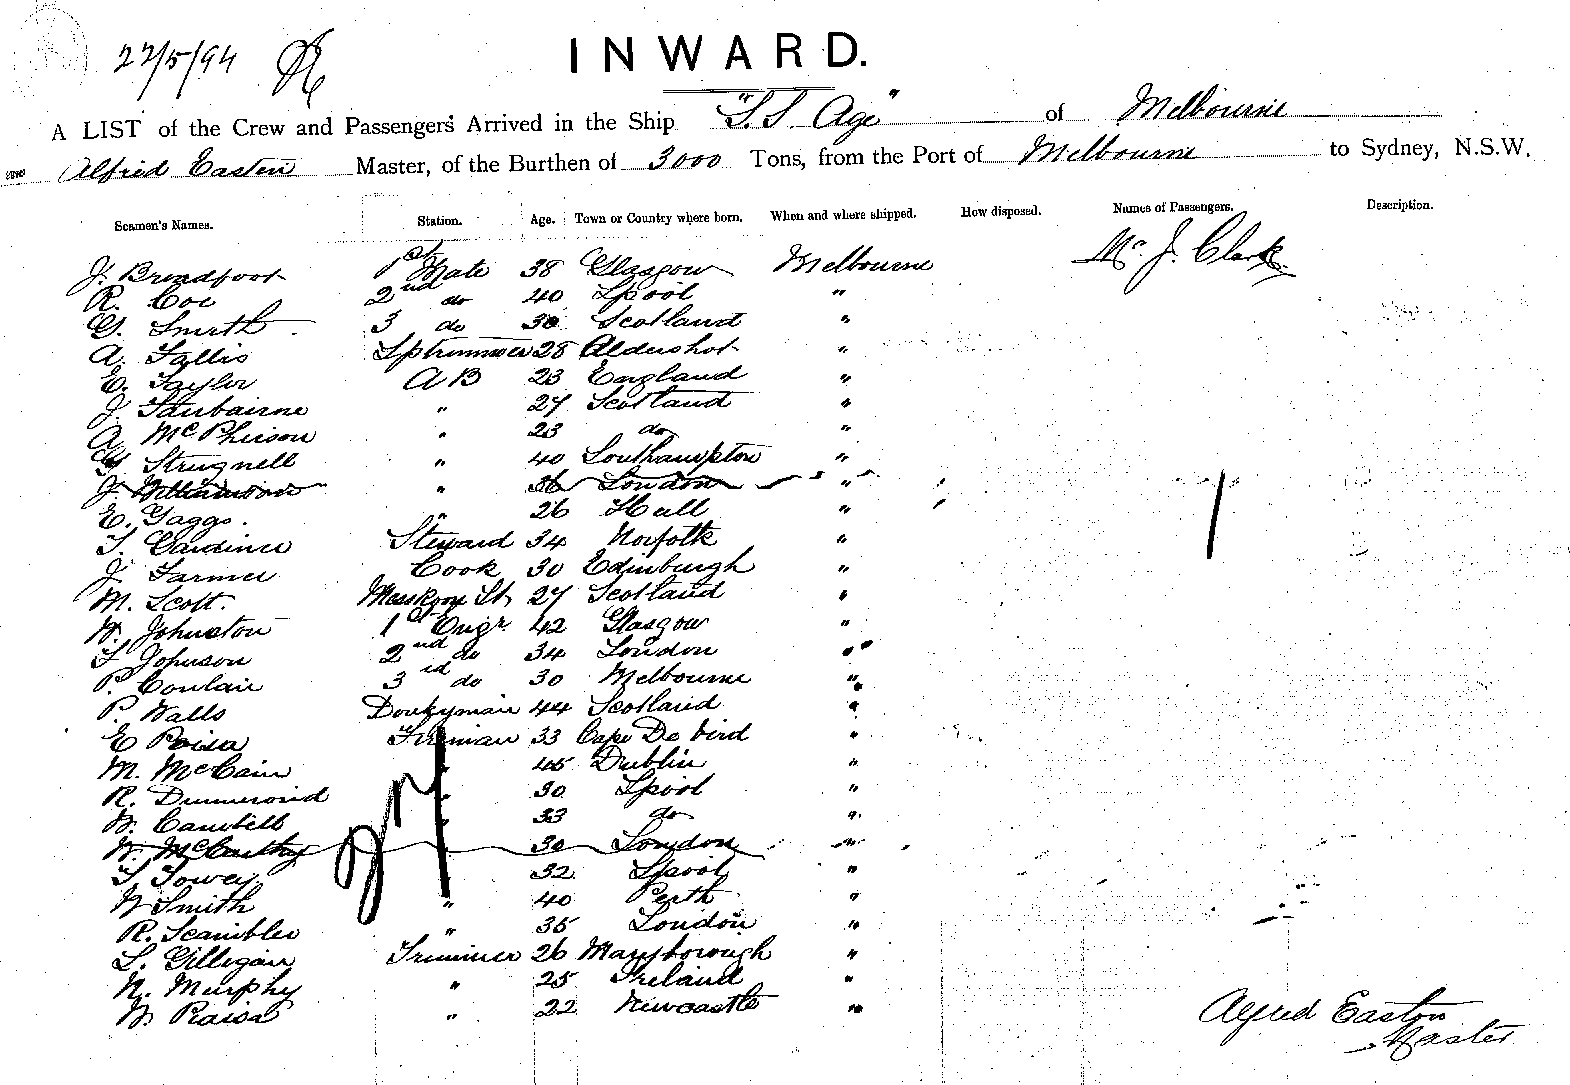 27/5/94
INWARD.
A LIST of the Crew and Passengers Arrived in the Ship "S.S. Age" of Melbourne
Alfred Easton Master, of the Burthen of 3000 Tons, from the Port of Melbourne to Sydney, N.S.W.
Seamen's Names. Station. Age. Town or Country where born. When and where shipped. How disposed. Names of Passengers. Description.
J. Broadfoot 1st Mate 38 Glasgow Melbourne Mr. J. Clark
R. Coe 2nd do 40 Lpool "
G. Smith 3 do 30 Scotland "
A. Fallis Lptrimmer 28 Aldershot "
E. Taylor AB 23 England "
J. Fairbairne " 27 Scotland "
A. McPherson " 23 do "
G. Strugnell " 40 Southampton "
J. Williamson " 36 London "
E. Gaggs. " 26 Hull "
T. Gardiner Steward 34 Norfolk "
J. Farmer Cook 30 Edinburgh "
M. Scott. Messroom St. 27 Scotland "
W. Johnston 1st Engr. 42 Glasgow "
T Johnson 2nd do 34 London "
P. Conlair 3rd do 30 Melbourne "
P. Walls Donkyman 44 Scotland "
E Poisa Fireman 33 Cape De Vird "
M. McCain 45 Dublin "
R. Dummond 30 Lpool "
W. Cambell 33 do "
W. McCarthy 30 London "
T Towey 32 Lpool "
W Smith " 40 Perth "
R. Scambler " 35 London "
L. Gilligan Trimmer 26 Maryborough "
N. Murphy " 25 Ireland "
W. Raisa " 22 Newcastle "
Alfred Easton
Master